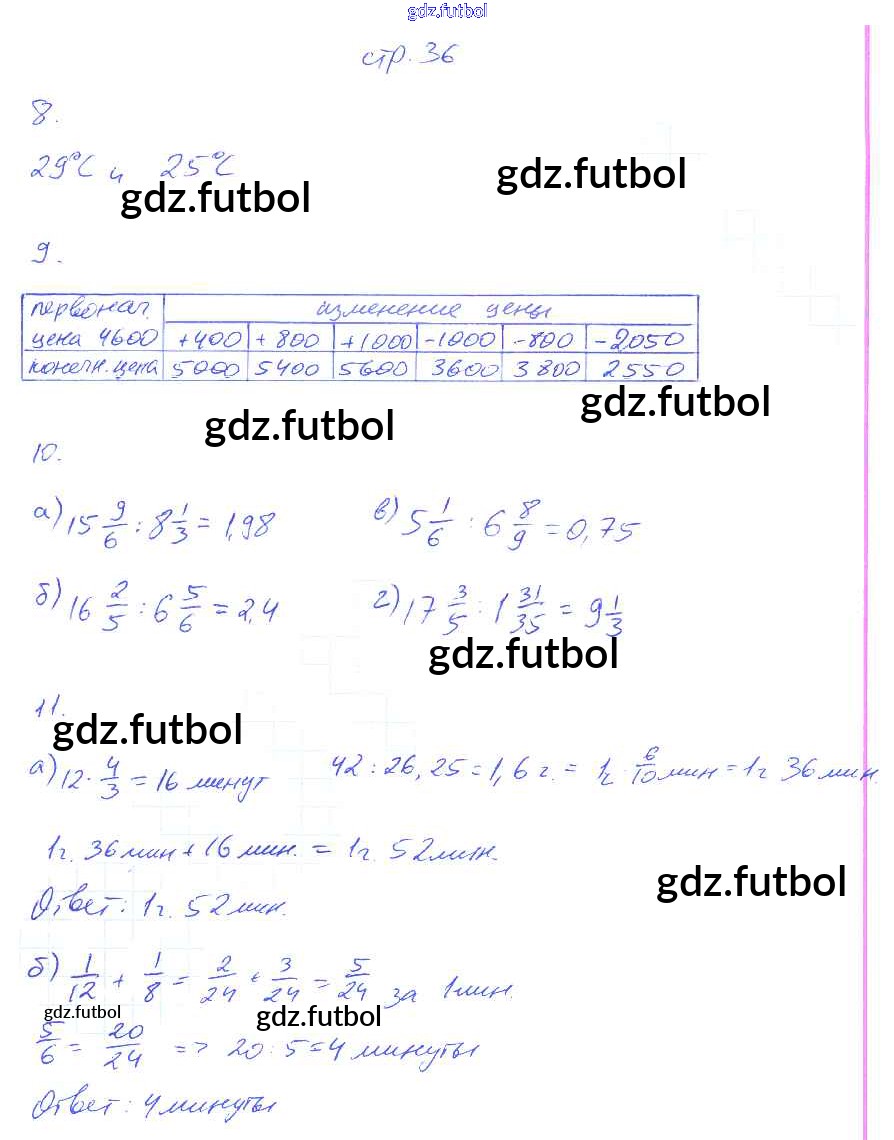 gdz.futbol
стр. 36
8.
29°C и 25°C
gdz.futbol
gdz.futbol
9.
первонач. изменение цены
цена 4600 +400 +800 +1000 -1000 -800 -2050
конечн. цена 5000 5400 5600 3600 3800 2550
gdz.futbol
gdz.futbol
10.
а) 15 9/6 : 8 1/3 = 1,98 в) 5 1/6 : 6 8/9 = 0,75
б) 16 2/5 : 6 5/6 = 2,4 г) 17 3/5 : 1 31/35 = 9 1/3
gdz.futbol
11.
gdz.futbol
а) 12 · 4/3 = 16 минут 42 : 26,25 = 1,6 г. = 1г 6/10 мин = 1г 36 мин.
1г. 36 мин + 16 мин. = 1г. 52 мин.
gdz.futbol
Ответ: 1г. 52 мин.
б) 1/12 + 1/8 = 2/24 + 3/24 = 5/24 за 1 мин.
gdz.futbol
gdz.futbol
5/6 = 20/24 => 20 : 5 = 4 минуты
Ответ: 4 минуты